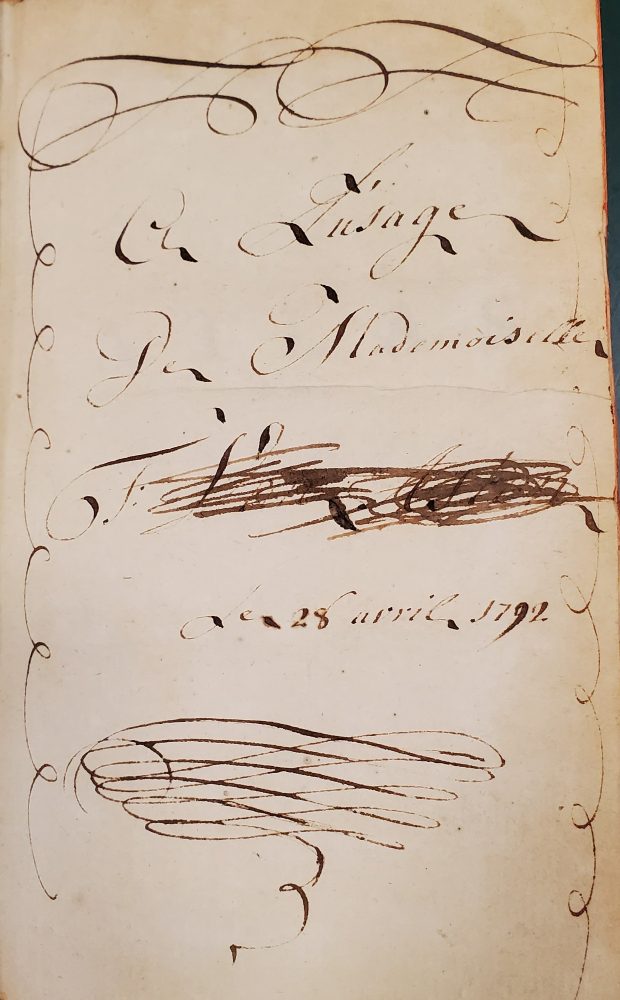 A L'usage
De Mademoiselle
F.
Le 28 avril 1792